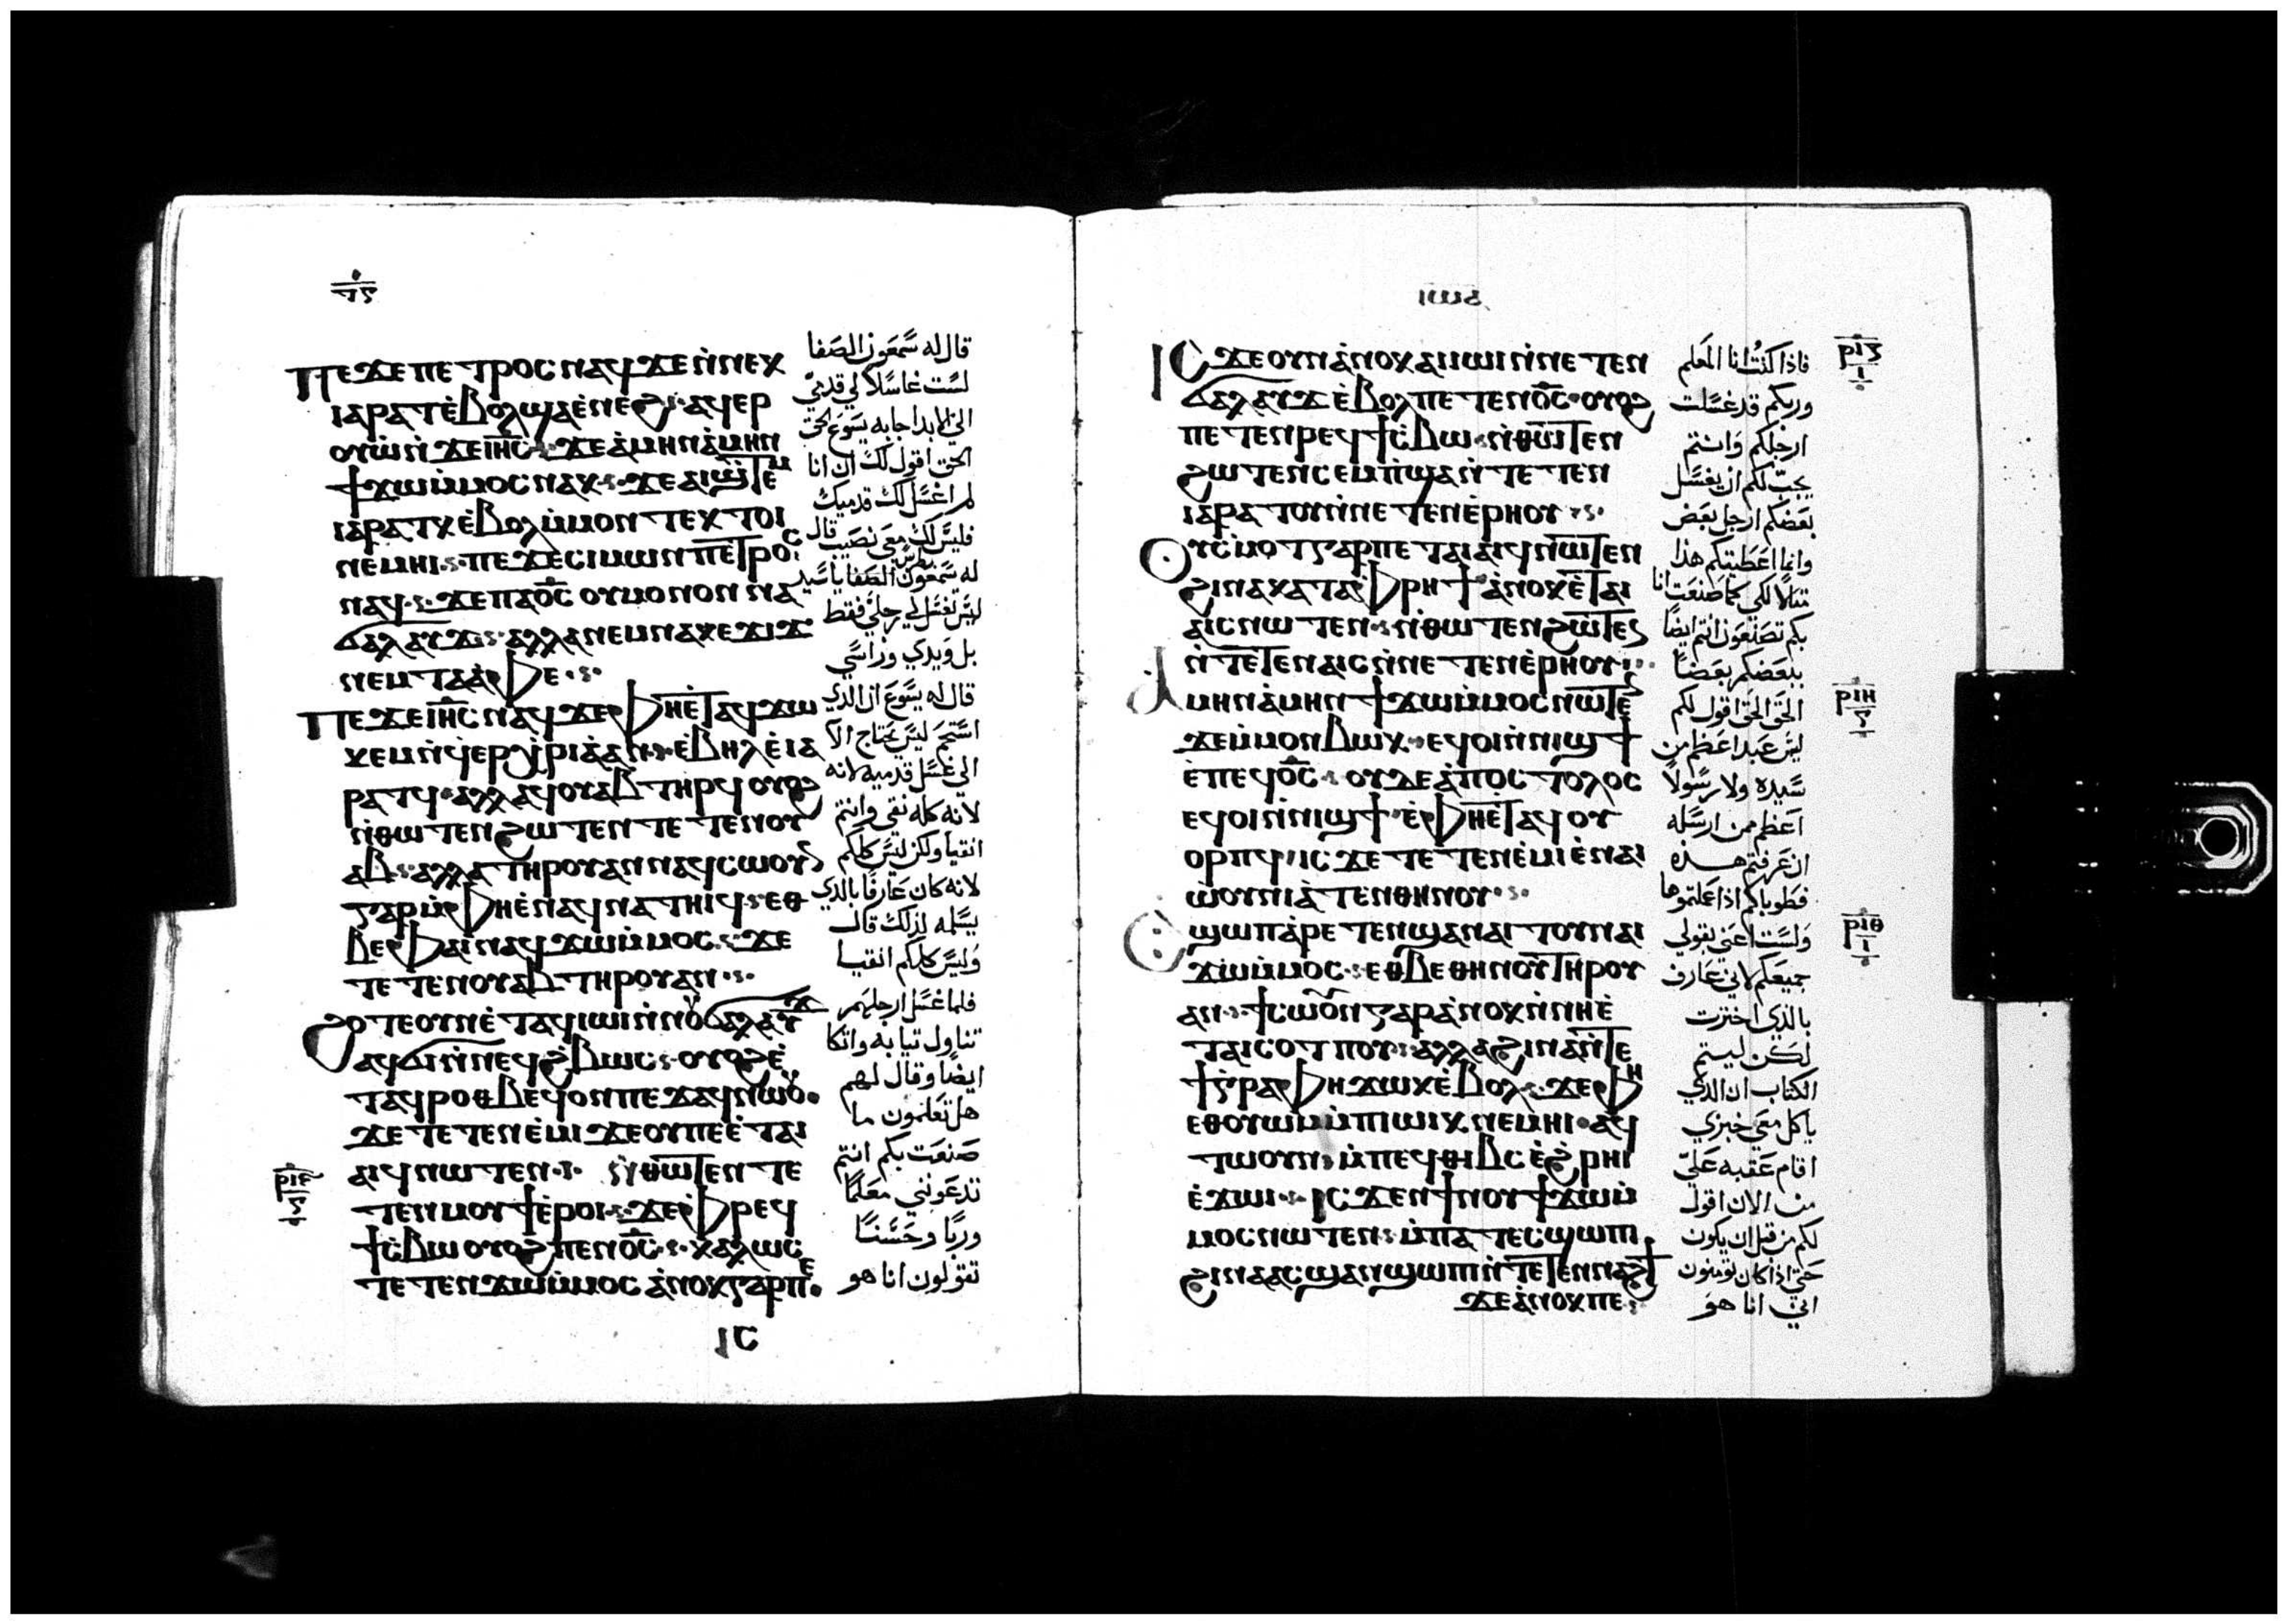 Ⲡⲉϫⲉⲡⲉⲧⲣⲟⲥⲛⲁϥϫⲉⲛ̀ⲛⲉⲕ
ⲓⲁⲣⲁⲧⲉ̀ⲃⲟⲗϣⲁⲉ̀ⲛⲉϩ:ⲁϥⲉⲣ
ⲟⲩⲱ̀ⲛ̀ϫⲉⲓⲏ̅ⲥ̅:ϫⲉⲁ̀ⲙⲏⲛⲁ̀ⲙⲏⲛ
ϯϫⲱⲙ̀ⲙⲟⲥⲛⲁⲕ:ϫⲉⲁⲓϣ̀ⲧⲉⲙ
ⲓⲁⲣⲁⲧⲕⲉ̀ⲃⲟⲗⲙ̀ⲙⲟⲛⲧⲉⲕⲧⲟⲓ
ⲛⲉⲙⲏⲓ:ⲡⲉϫⲉⲥⲓⲙⲱⲛⲡⲉⲧⲣⲟⲥ
ⲛⲁϥ:ϫⲉⲡⲁⲟ̅ⲥ̅ⲟⲩⲙⲟⲛⲟⲛⲛⲁ
ϭⲁⲗⲁⲩϫ:ⲁⲗⲗⲁⲛⲉⲙⲛⲁⲕⲉϫⲓϫ
ⲛⲉⲙⲧⲁⲁ̀ⲫⲉ:
Ⲡⲉϫⲉⲓⲏ̅ⲥ̅ⲛⲁϥϫⲉⲫⲏⲉ̀ⲧⲁϥϫⲱ
ⲕⲉⲙⲛ̀ϥⲉⲣⲭ̀ⲣⲓⲁ̀ⲁⲛ:ⲉ̀ⲃⲏⲗⲉ̀ⲓⲁ
ⲣⲁⲧϥ:ⲁⲗⲗⲁϥⲟⲩⲁⲃⲧⲏⲣϥⲟⲩⲟϩ
ⲛ̀ⲑⲱⲧⲉⲛϩⲱⲧⲉⲛⲧⲉⲧⲉⲛⲟⲩ
ⲁⲃ:ⲁⲗⲗⲁⲧⲏⲣⲟⲩⲁⲛⲛⲁϥⲥⲱⲟⲩⲛ
ⲅⲁⲣⲙ̀ⲫⲏⲉ̀ⲛⲁϥⲛⲁⲧⲏⲓϥ:ⲉⲑ
ⲃⲉⲫⲁⲓⲛⲁϥϫⲱⲙ̀ⲙⲟⲥ:ϫⲉ
ⲧⲉⲧⲉⲛⲟⲩⲁⲃⲧⲏⲣⲟⲩⲁⲛ:
Ϩⲟⲧⲉⲟⲩⲛⲉ̀ⲧⲁϥⲓⲱⲓⲛ̀ⲛⲟⲩϭⲁⲗⲁⲩϫ
ⲁϥϭⲓⲛ̀ⲛⲉϥϩ̀ⲃⲱⲥ:ⲟⲩⲟϩⲉ̀
ⲧⲁϥⲣⲟⲑⲃⲉϥⲟⲛⲡⲉϫⲁϥⲛⲱⲟⲩ
ϫⲉⲧⲉⲧⲉⲛⲉ̀ⲙⲓϫⲉⲟⲩⲡⲉⲉ̀ⲧⲁⲓ
ⲁⲓϥⲛⲱⲧⲉⲛ: ⲛ̀ⲑⲱⲧⲉⲛⲧⲉ
ⲧⲉⲛⲙⲟⲩϯⲉ̀ⲣⲟⲓ:ϫⲉⲫ̀ⲣⲉϥ
ϯⲥ̀ⲃⲱⲟⲩⲟϩⲡⲉⲛⲟ̅ⲥ̅:ⲕⲁⲗⲱⲥ
ⲧⲉⲧⲉⲛϫⲱⲙ̀ⲙⲟⲥⲁ̀ⲛⲟⲕⲅⲁⲣⲡⲉ
ⲒⲤ
قال له سمعون الصفا
لست غاسلاً لي قدمي
الى الابد اجابه يسوع الحق
الحق اقول لك ان انا
لم اغسل لك قدميك
فليس لك معي نصيب قال
له سمعون الصفا بطرس ياسيد
ليس تغسل لي رجلي فقط
بل ويدي وراسي
قال له يسوع ان الدي
استحم ليس يحتاج الا
الى غسل قدميه لانه
لانه كله نقي وانتم
انقيا ولكن ليس كلكم
لانه كان عارفا بالدي
يسلمه لذلك قال
وليس كلكم انقيا
فلما غسل ارجلهم
تناول تيابه واتكا
ايضا وقال لهم
هل تعلمون ما
صنعت بكم انتم
تدعونني معلما
وربا وحسنا
تقولون انا هو
ⲒⲤϫⲉⲟⲩⲛⲁ̀ⲛⲟⲕⲁⲓⲓⲱⲓⲛ̀ⲛⲉⲧⲉⲛ
ϭⲁⲗⲁⲩϫⲉ̀ⲃⲟⲗⲡⲉⲧⲉⲛⲟ̅ⲥ̅:ⲟⲩⲟϩ
ⲡⲉⲧⲉⲛⲣⲉϥϯⲥ̀ⲃⲱ:ⲛ̀ⲑⲱⲧⲉⲛ
ϩⲱⲧⲉⲛⲥⲉⲙ̀ⲡϣⲁⲛ̀ⲧⲉⲧⲉⲛ
ⲓⲁⲣⲁⲧⲟⲩⲛ̀ⲛⲉⲧⲉⲛⲉ̀ⲣⲏⲟⲩ:
Ⲟⲩⲥ̀ⲙⲟⲧⲅⲁⲣⲡⲉⲧⲁⲓⲁⲓϥⲛⲱⲧⲉⲛ
ϩⲓⲛⲁⲕⲁⲧⲁⲫ̀ⲣⲏϯⲁ̀ⲛⲟⲕⲉ̀ⲧⲁⲓ
ⲁⲓⲥⲛⲱⲧⲉⲛ:ⲛ̀ⲑⲱⲧⲉⲛϩⲱⲧⲉⲛ
ⲛ̀ⲧⲉⲧⲉⲛⲁⲓⲥⲛ̀ⲛⲉⲧⲉⲛⲉ̀ⲣⲏⲟⲩ:
Ⲁ̀ⲙⲏⲛⲁ̀ⲙⲏⲛϯϫⲱⲙ̀ⲙⲟⲥⲛⲱⲧⲉⲛ
ϫⲉⲙ̀ⲙⲟⲛⲃⲱⲕ:ⲉϥⲟⲓⲛ̀ⲛⲓϣϯ
ⲉ̀ⲡⲉϥⲟ̅ⲥ̅:ⲟⲩⲇⲉⲁ̀ⲡⲟⲥⲧⲟⲗⲟⲥ
ⲉϥⲟⲓⲛ̀ⲛⲓϣϯ:ⲉ̀ⲫⲏⲉ̀ⲧⲁϥⲟⲩ
ⲟⲣⲡϥ:ⲓⲥϫⲉⲧⲉⲧⲉⲛⲉ̀ⲙⲓⲉ̀ⲛⲁⲓ
ⲱ̀ⲟⲩⲛⲓⲁ̀ⲧⲉⲛⲑⲏⲛⲟⲩ:
Ⲉ̀ϣⲱⲡⲁ̀ⲣⲉⲧⲉⲛϣⲁⲛⲁⲓⲧⲟⲩⲛⲁⲓ
ϫⲱⲙ̀ⲙⲟⲥ:ⲉⲑⲃⲉⲑⲏⲛⲟⲩⲧⲏⲣⲟⲩ
ⲁⲛ:ϯⲥⲱⲟⲩⲛⲅⲁⲣⲁ̀ⲛⲟⲕⲛ̀ⲛⲏⲉ̀
ⲧⲁⲓⲥⲟⲧⲡⲟⲩ:ⲁⲗⲗⲁϩⲓⲛⲁⲛ̀ⲧⲉ
ϯⲅ̀ⲣⲁⲫⲏϫⲱⲕⲉ̀ⲃⲟⲗ:ϫⲉⲫⲏ
ⲉⲑⲟⲩⲱⲙⲙ̀ⲡⲓⲱⲓⲕⲛⲉⲙⲏⲓ:ⲁϥ
ⲧⲱⲟⲩⲛ:ⲙ̀ⲡⲉϥⲑⲓⲃⲥⲉ̀ϩ̀ⲣⲏⲓ
ⲉ̀ϫⲱⲓ:ⲓⲥϫⲉⲛϯⲛⲟⲩϯϫⲱⲙ̀
ⲙⲟⲥⲛⲱⲧⲉⲛ:ⲙ̀ⲡⲁⲧⲉⲥϣⲱⲡⲓ
ϩⲓⲛⲁⲁⲥϣⲁⲛϣⲱⲡⲓⲛ̀ⲧⲉⲧⲉⲛⲛⲁϩϯ
ϫⲉⲁ̀ⲛⲟⲕⲡⲉ:
فاذا كنت انا المعلم
وربكم قد غسلت
ارجلكم وانتم
يجب لكم ان يغسل
بعضكم ارجل بعض
وانما اعطيتكم هذا
متلا لكي كما صنعت انا
بكم تصنعون انتم ايضا
ببعضكم بعضا
الحق الحق اقول لكم
ليس عبد اعظم من
سيده ولا رسولا
اعظم ممن ارسله
ان عرفتم هذه
فطوباكم اذا عملتموها
ولست اعني بقولي
جميعكم لاني عارف
بالذي اخترت
لكن ليتم
الكتاب ان الدي
ياكل معي خبزي
اقام عقبه علي
من الان اقول
لكم من قبل ان يكون
حتى اذا كان تومنون
اني انا هو
ⲣⲓⲏ
ⲣⲓⲑ